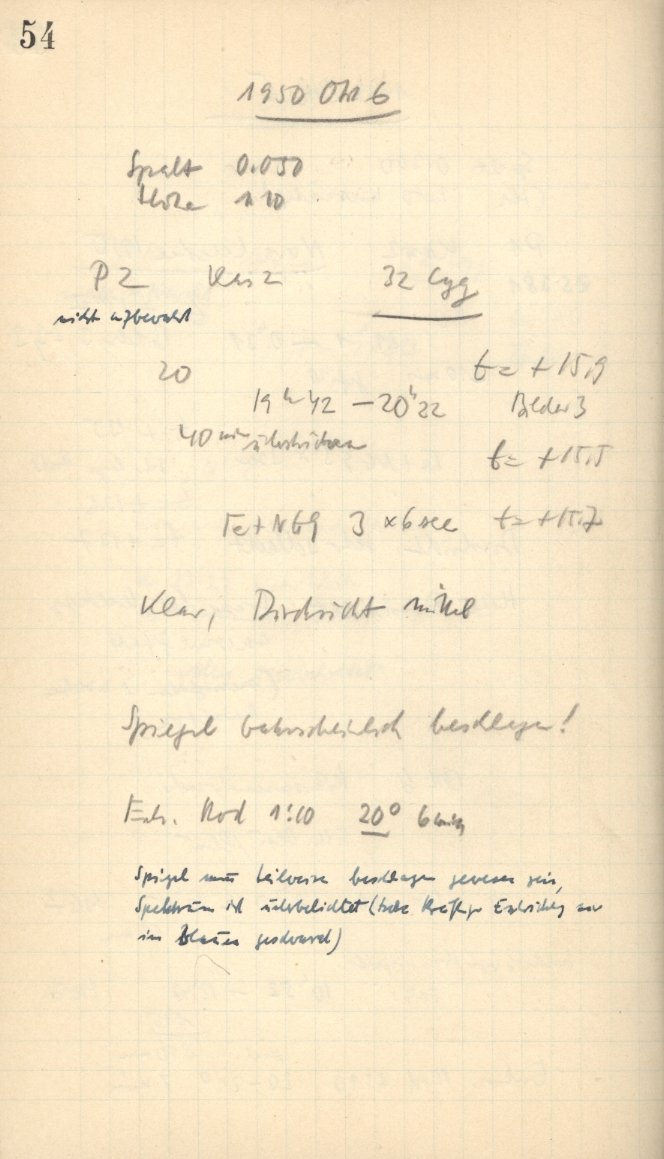 54
1950 Okt 6
Spalt 0.050
Höhe 1.10
P2 Kas 2 32 Cyg
nicht aufbewahrt
20 t = +15,9
19h 42 – 20h 22 Bilder 3
40 min t = +15,5
Fe + N69 3 x 6 sec t = +15,7
Klar, Durchsicht mittel
Spiegel wahrscheinlich beschlagen!
Entw. Rod 1:10 20° 6 min
Spiegel muss teilweise beschlagen gewesen sein,
Spektrum ist unterbelichtet (trotz kräftiger Entwicklg nur
im Blauen geschwärzt)